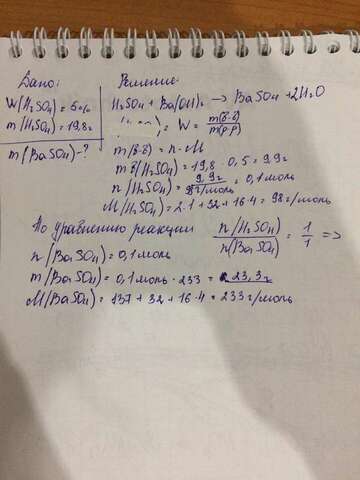 Дано:
W(H₂SO₄) = 5%
m(H₂SO₄) = 19,8г
m(BaSO₄) - ?
Решение:
H₂SO₄ + Ba(OH)₂ → BaSO₄ + 2H₂O
) = W = m(в-в)/m(р-р)
m(в-в) = n · M
m в(H₂SO₄) = 19,8 · 0,5 = 9,9г
n(H₂SO₄) = 9,9г/98г/моль = 0,1 моль
M(H₂SO₄) = 2·1 + 32 + 16·4 = 98г/моль
По уравнению реакции n(H₂SO₄)/n(BaSO₄) = 1/1 =>
n(BaSO₄) = 0,1 моль
m(BaSO₄) = 0,1 моль · 233 = 23,3г
M(BaSO₄) = 137 + 32 + 16·4 = 233 г/моль